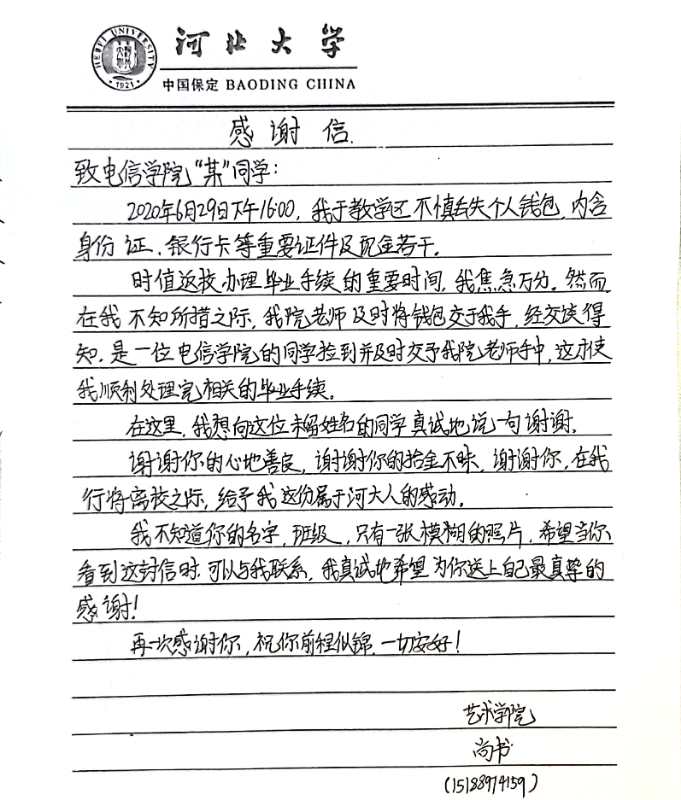 HEBEI UNIVERSITY
1921
河北大学
中国保定 BAODING CHINA
感谢信.
致电信学院“某”同学:
2020年6月29日下午16:00，我于教学区不慎丢失个人钱包，内含
身份证、银行卡等重要证件及现金若干。
时值返校办理毕业手续的重要时间，我焦急万分。然而
在我不知所措之际，我院老师及时将钱包交于我手，经交谈得
知，是一位电信学院的同学捡到并及时交予我院老师手中，这才使
我顺利处理完相关的毕业手续。
在这里，我想向这位未留姓名的同学真诚地说一句谢谢。
谢谢你的心地善良，谢谢你的拾金不昧，谢谢你，在我
行将离校之际，给予我这份属于河大人的感动。
我不知道你的名字，班级，只有一张模糊的照片，希望当你
看到这封信时，可以与我联系，我真诚地希望为你送上自己最真挚的
感谢!
再次感谢你，祝你前程似锦，一切安好!
艺术学院
尚书
(15188974159)